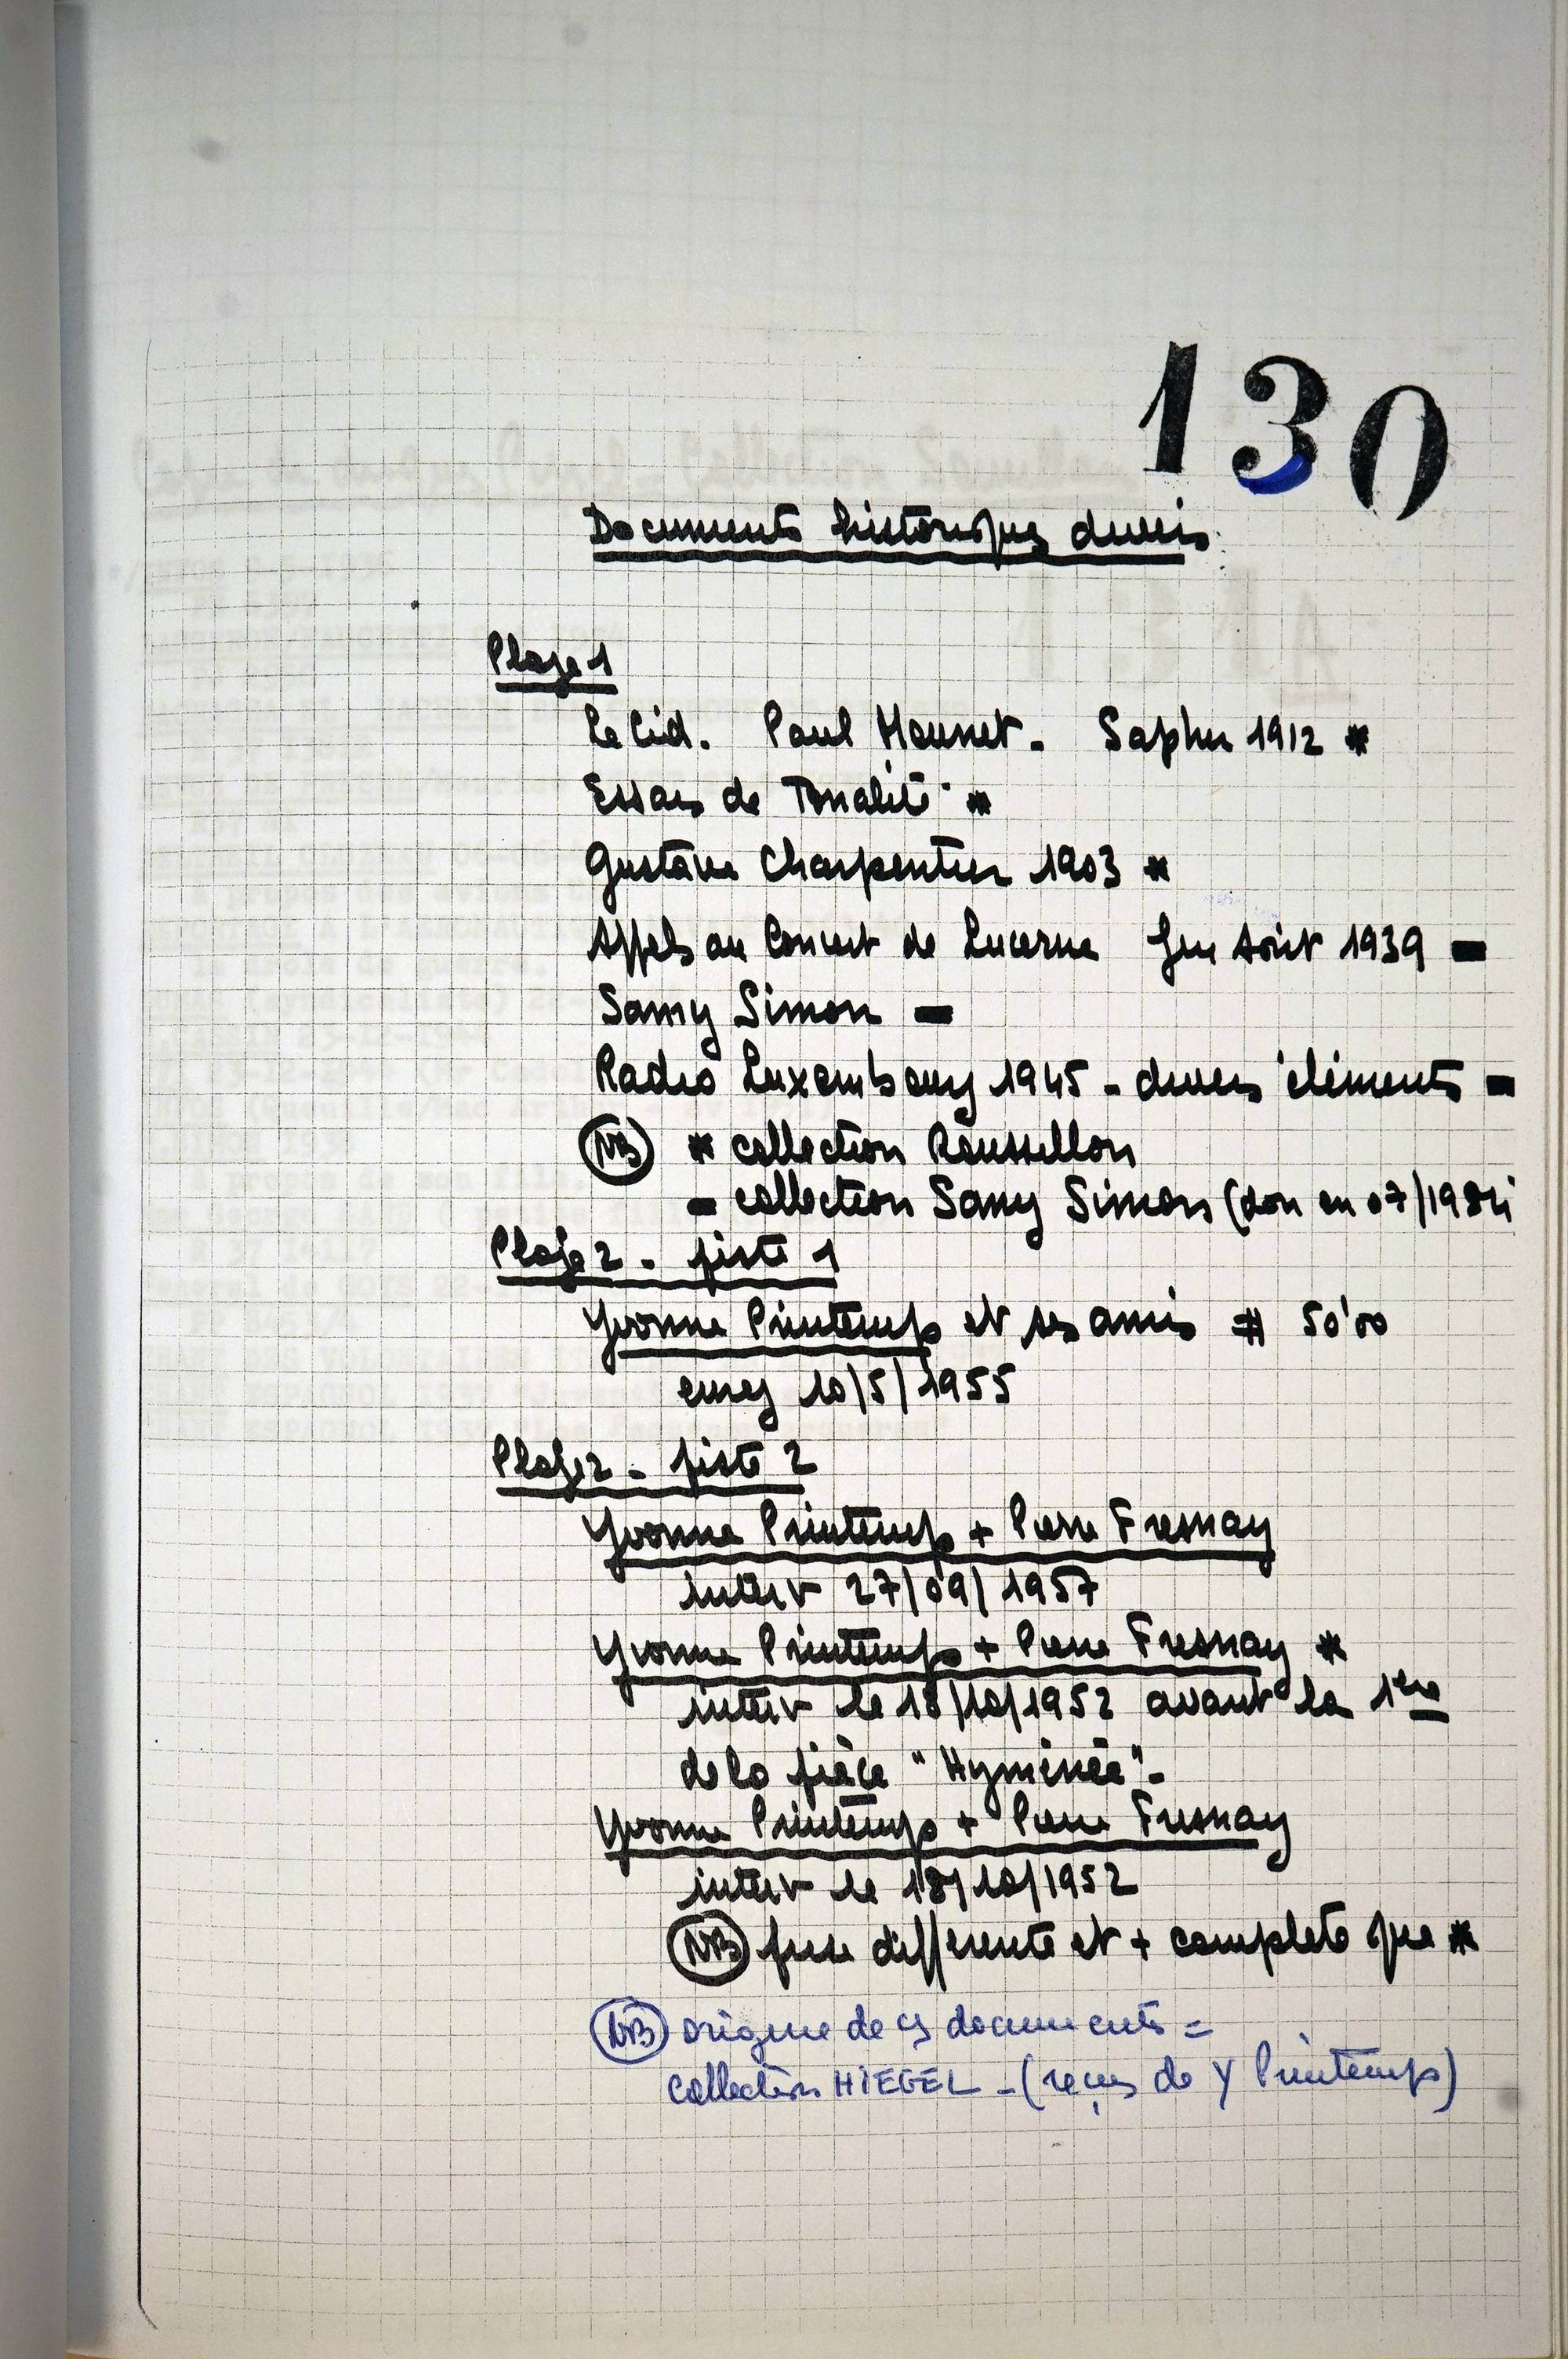 130
Documents historiques divers
Plage 1
Le Cid. Paul Mounet. Saphir 1912 *
Essais de Tonalité *
Gustave Charpentier 1903 *
Appels au Concert de Lucerne Août 1939 -
Samy Simon -
Radio Luxembourg 1945 - divers éléments -
NB * collection Roussillon
- collection Samy Simon (don en 07/1984
Plage 2 - piste 1
Yvonne Printemps et ses amis # 50'00
enreg 10/5/1955
Plage 2 - piste 2
Yvonne Printemps + Pierre Fresnay
interv 27/09/1957
Yvonne Printemps + Pierre Fresnay *
interv le 18/10/1952 avant la 1ère
de la pièce "Hyménée".
Yvonne Printemps + Pierre Fresnay
interv le 18/10/1952
NB prise différente et + complète que *
NB origine de cs documents =
collection HIEGEL - (reçus de Y Printemps)